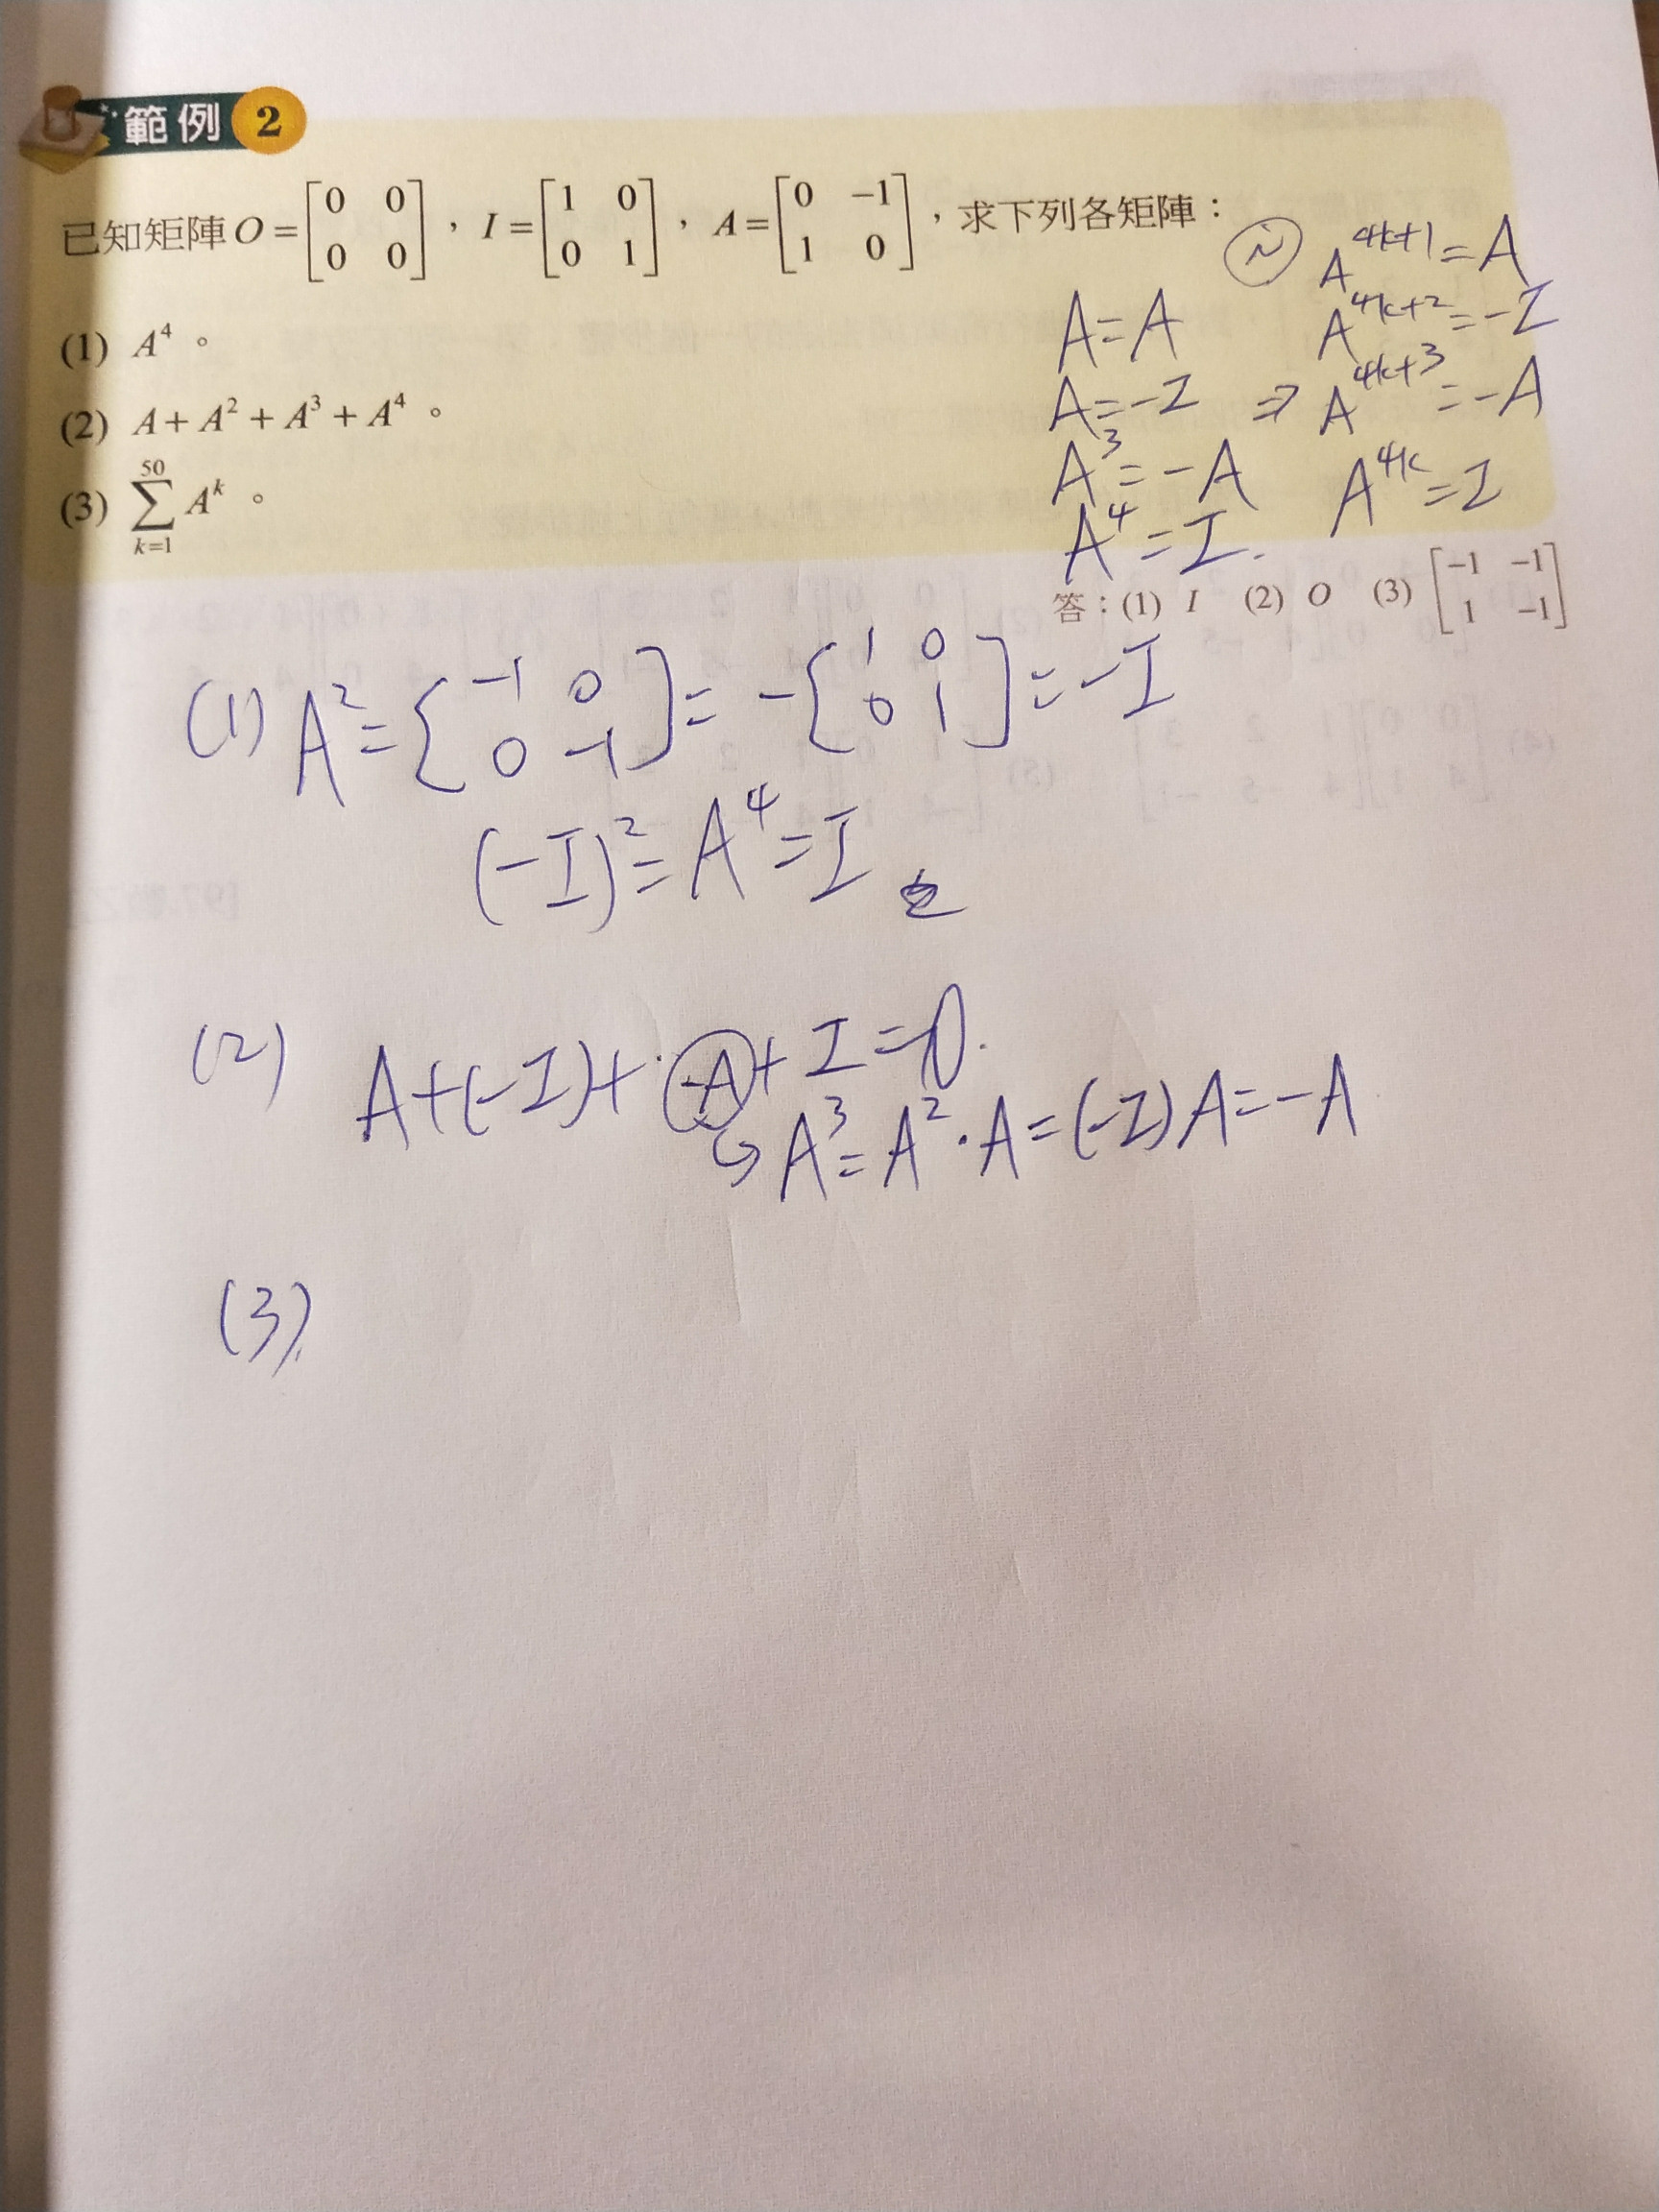 範例 2
已知矩陣 O = [0 0; 0 0],I = [1 0; 0 1],A = [0 -1; 1 0],求下列各矩陣:
(1) A⁴。
(2) A + A² + A³ + A⁴。
(3) ∑_{k=1}^{50} Aᵏ。
A = A
A = -I
A³ = -A
A⁴ = I.
⇒
A^{4k+1} = A
A^{4k+2} = -I
A^{4k+3} = -A
A^{4k} = I
答:(1) I (2) O (3) [-1 -1; 1 -1]
(1) A² = [-1 0; 0 -1] = -[1 0; 0 1] = -I
(-I)² = A⁴ = I
(2) A + (-I) + -A + I = 0.
↳ A³ = A² · A = (-I) A = -A
(3).